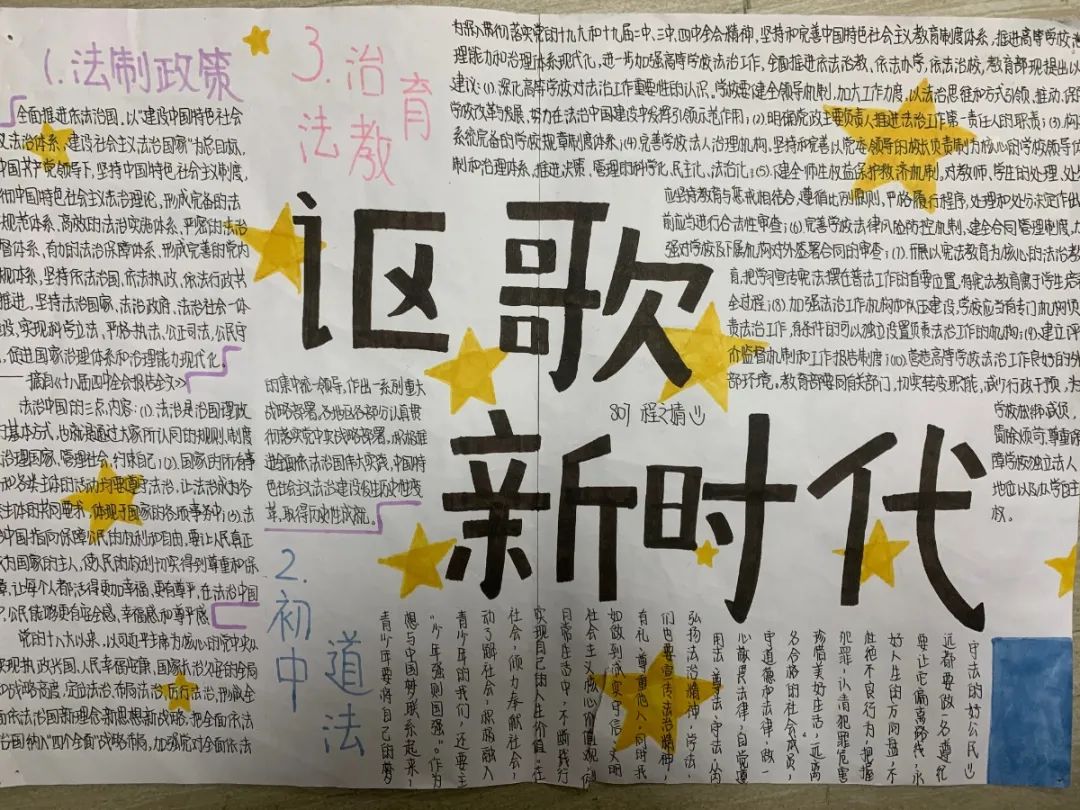 1.法制政策
全面推进依法治国,以"建设中国特色社会
义法治体系、建设社会主义法治国家"为总目标,
中国共产党领导下,坚持中国特色社会主义制度,
彻中国特色社会主义法治理论,形成完备的法
规范体系、高效的法治实施体系、严密的法治
督体系、有力的法治保障体系,形成完善的党内
规体系,坚持依法治国、依法执政、依法行政共
推进,坚持法治国家、法治政府、法治社会一体
设,实现科学立法,严格执法,公正司法,公民守
,促进国家治理体系和治理能力现代化。
——摘自《十八届四中全会报告全文》
法治中国的三点内容:(1)、法治是治国理政
的基本方式,也就是通过大家所认同的规则、制度
治理国家、管理社会、约束自己;(2)、国家的所有事
和各类主体的活动均要遵守法治,让法治成为各
主体的共同要求,体现于国家的各项事务中;(3)、法
治中国指向保障公民的权利和自由,要让人民真正
成为国家的主人,使人民的权利切实得到尊重和保
障,让每个人都活得更加幸福,更有尊严,在法治中国
中,公民能够更有安全感、幸福感和尊严感
党的十八大以来,以习近平主席为核心的党中央从
实现执政兴国、人民幸福安康、国家长治久安的全局
和战略高度,定位法治、布局法治、厉行法治,形成全
面依法治国新理念新思想新战略,把全面依法
治国纳入"四个全面"战略布局,加强党对全面依法
的集中统一领导,作出一系列重大
战略部署,各地区各部分认真贯
彻落实党中央战略部署,积极推
进全面依法治国伟大实践,中国特
色社会主义法治建设发生历史性变
革、取得历史性成就。
3.法治教育
为深入贯彻落实党的十九大和十九届二中、三中、四中全会精神,坚持和完善中国特色社会主义教育制度体系,推进高等学校治
理能力和治理体系现代化,进一步加强高等学校法治工作,全面推进依法治教、依法办学、依法治校,教育部现提出以
建议:(1)、深化高等学校对法治工作重要性的认识,学校要健全领导机制,加大工作力度,以法治思维和方式引领、推动、保障
学校改革与发展,努力在法治中国建设中发挥引领示范作用;(2)、明确党政主要负责人推进法治工作第一责任人的职责;(3)、构建
系统完备的学校规章制度体系;(4)、完善学校法人治理机构,坚持和完善以党委领导的校长负责制为核心的学校领导体
制和治理体系,推进决策、管理的科学化、民主化、法治化;(5)、健全师生权益保护救济机制,对教师、学生的处理、处分
应坚持教育与惩戒相结合、遵循比例原则、严格履行程序,处理和处分决定作出
前应当进行合法性审查;(6)、完善学校法律风险防控机制,健全合同管理制度,加
强对学校及下属机构对外签署合同的审查;(7)、开展以宪法教育为核心的法治教
育,把学习宣传宪法摆在普法工作的首要位置,将宪法教育寓于学生培养
全过程;(8)、加强法治工作机构和队伍建设,学校应当有专门机构负
责法治工作,有条件的可以独立设置负责法治工作的机构;(9)、建立评价
和监督机制和工作报告制度;(10)、营造高等学校法治工作良好的外
部环境。教育部要同有关部门,切实转变职能,减少行政干预,为
学校松绑减负,
简除烦苛,尊重保
障学校独立法人
地位以及办学自主
权。
讴歌
新时代
807 程文婧
2.初中道法
守法的好公民
远都要做一名遵纪
要让它偏离路线,永
好人生的方向盘,不
绝不良行为,把握
犯罪,认清犯罪危害
珍惜美好生活,远离
名合格的社会成员,
守道德和法律,做一
心敬畏法律,自觉遵
用法、尊法、守法,从内
弘扬法治精神,学法、
们也要宣传法治精神,
有礼、尊重他人,同时我
如做到诚实守信、文明
社会主义核心价值观,例
日常生活中,不断践行
实现自己的人生价值。在
社会,倾力奉献社会,
动了解社会,积极融入
青少年的我们,还要主
"少年强则国强"。作为
想与中国梦联系起来,
青少年要将自己的梦